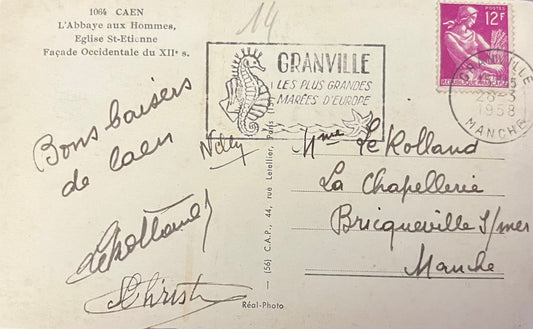 14
1064 CAEN
L'Abbaye aux Hommes,
Eglise St-Etienne
Façade Occidentale du XIIe s.
GRANVILLE
LES PLUS GRANDES
MARÉES D'EUROPE
POSTES
12F
GRANVILLE
28-3
1958
MANCHE
Bons baisers
de Caen
Nelly
Le Rolland
Christ
(56) C.A.P., 44, rue Letellier, Paris
Réal-Photo
Mme Le Rolland
La Chapellerie
Bricqueville s/mer
Manche